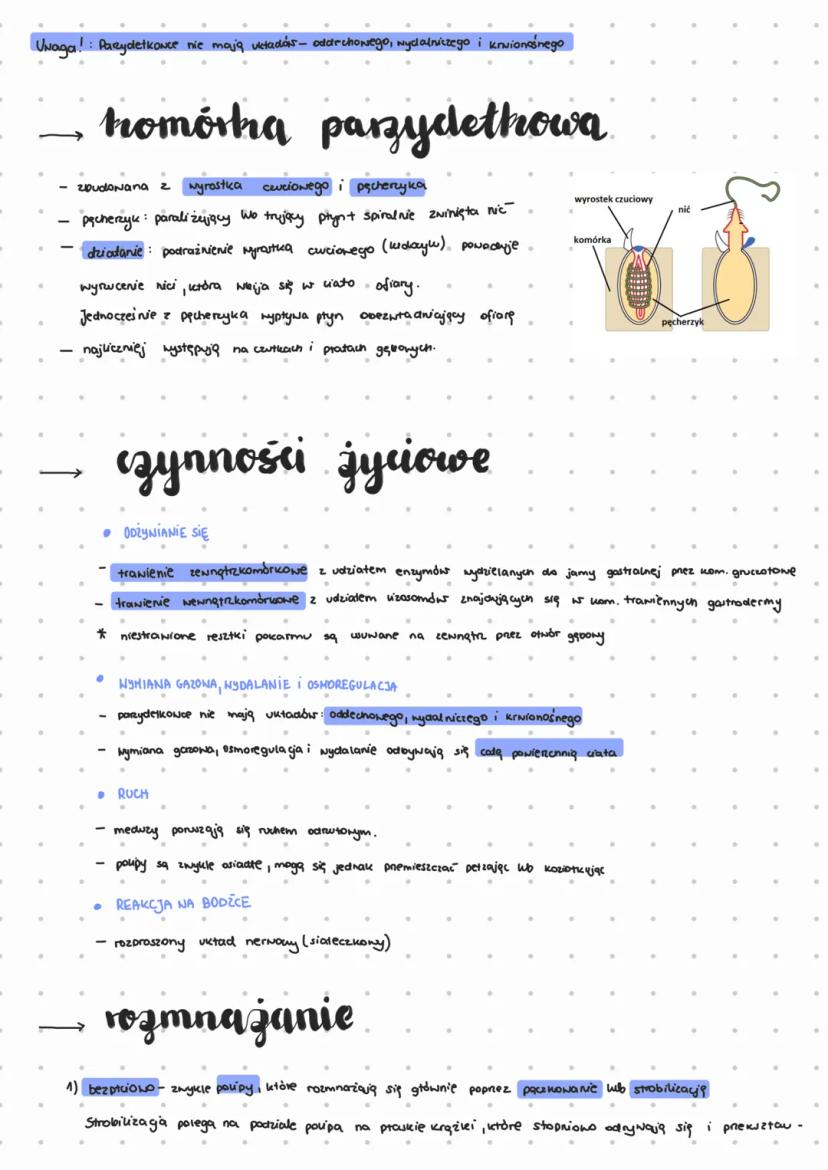 Uwaga! : Parzydełkowce nie mają układów – oddechowego, wydalniczego i krwionośnego
→ komórka parzydełkowa
– zbudowana z wyrostka czuciowego i pęcherzyka
– pęcherzyk : paraliżujący lub trujący płyn + spiralnie zwinięta nić
– działanie : podrażnienie wyrostka czuciowego (knidocylu) powoduje
wyrzucenie nici, która wbija się w ciało ofiary.
Jednocześnie z pęcherzyka wypływa płyn obezwładniający ofiarę
– najliczniej występują na czułkach i płatach gębowych.
wyrostek czuciowy
nić
komórka
pęcherzyk
→ czynności życiowe
• ODŻYWIANIE SIĘ
– trawienie zewnątrzkomórkowe z udziałem enzymów wydzielanych do jamy gastralnej przez kom. gruczołowe
– trawienie wewnątrzkomórkowe z udziałem lizosomów znajdujących się w kom. trawiennych gastrodermy
* niestrawione resztki pokarmu są usuwane na zewnątrz przez otwór gębowy
• WYMIANA GAZOWA, WYDALANIE i OSMOREGULACJA
– parzydełkowce nie mają układów : oddechowego, wydalniczego i krwionośnego
– wymiana gazowa, osmoregulacja i wydalanie odbywają się całą powierzchnią ciała
• RUCH
– meduzy poruszają się ruchem odrzutowym.
– polipy są zwykle osiadłe, mogą się jednak przemieszczać pełzając lub koziołkując
• REAKCJA NA BODŹCE
– rozproszony układ nerwowy (siateczkowy)
→ rozmnażanie
1) bezpłciowo – zwykle polipy, które rozmnażają się głównie poprzez pączkowanie lub strobilizację
Strobilizacja polega na podziale polipa na płaskie krążki, które stopniowo odrywają się i przekształ -